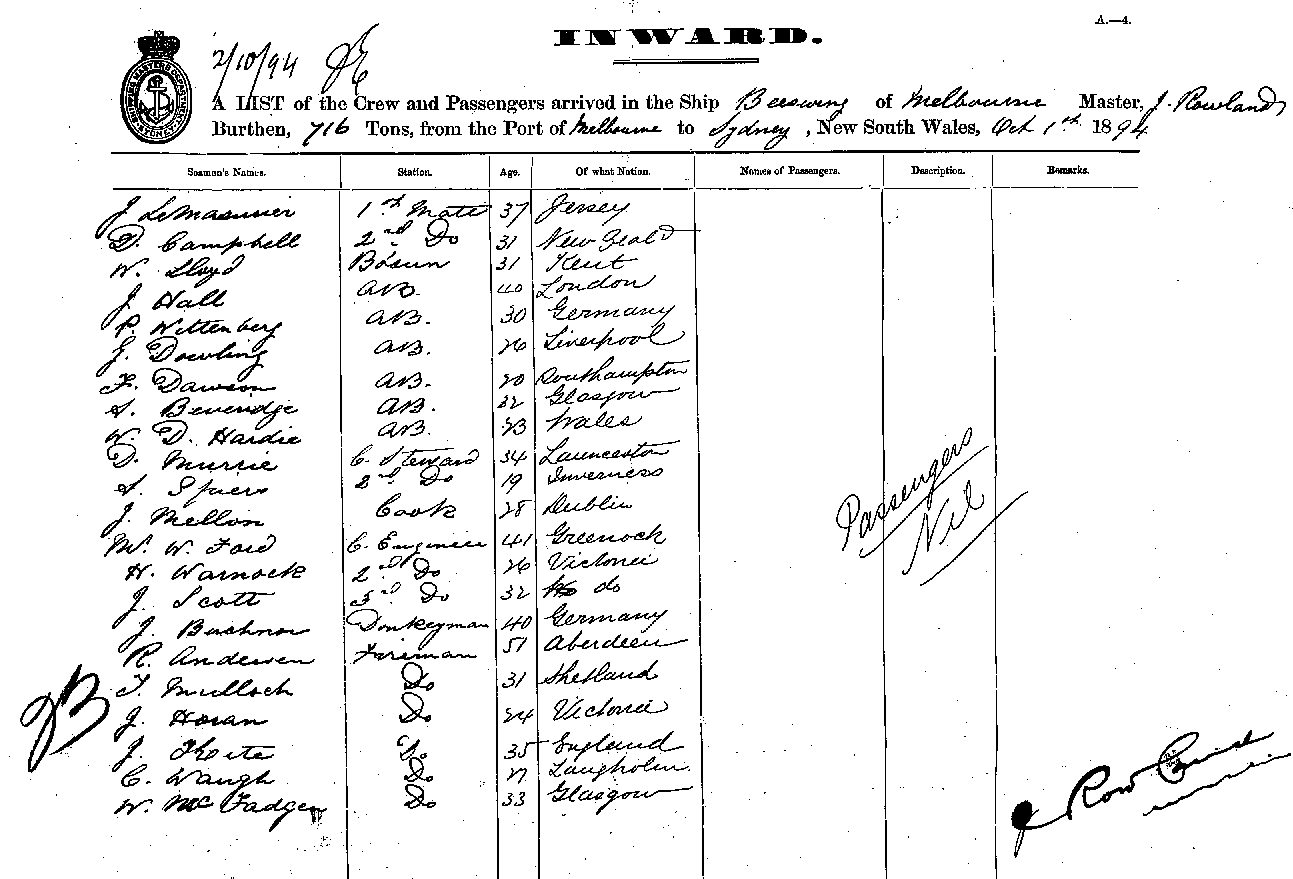 A.—4.
INWARD.
2/10/94
A LIST of the Crew and Passengers arrived in the Ship Beeswing of Melbourne Master, J. Rowlands
Burthen, 716 Tons, from the Port of Melbourne to Sydney, New South Wales, Oct 1th 1894
Seamen's Names. Station. Age. Of what Nation. Names of Passengers. Description. Remarks.
J. LeMasurier 1st Mate 37 Jersey
D. Campbell 2nd Do 31 New Zeald
W. Lloyd Bosun 31 Kent
J. Hall AB. 40 London
P. Wittenberg AB. 30 Germany
J. Dowling AB. 26 Liverpool
F. Dawson AB. 20 Southampton
A. Beveridge AB. 32 Glasgow
W. D. Hardie AB. 23 Wales
D. Murrie C. Steward 34 Launceston
A. Spiers 2nd Do 19 Inverness
J. Mellon Cook 28 Dublin
M. W. Ford C. Engineer 41 Greenock
H. Warnock 2nd Do 26 Victoria
J. Scott 3rd Do 32 do
J. Buchnor Donkeyman 40 Germany
R. Andersen Fireman 51 Aberdeen
T. Mulloch Do 31 Shetland
J. Horan Do 24 Victoria
J. Do 35 England
C. Waugh Do Langholm
W. McFadgen Do 33 Glasgow
Passengers
Nil
JB
J Rowland